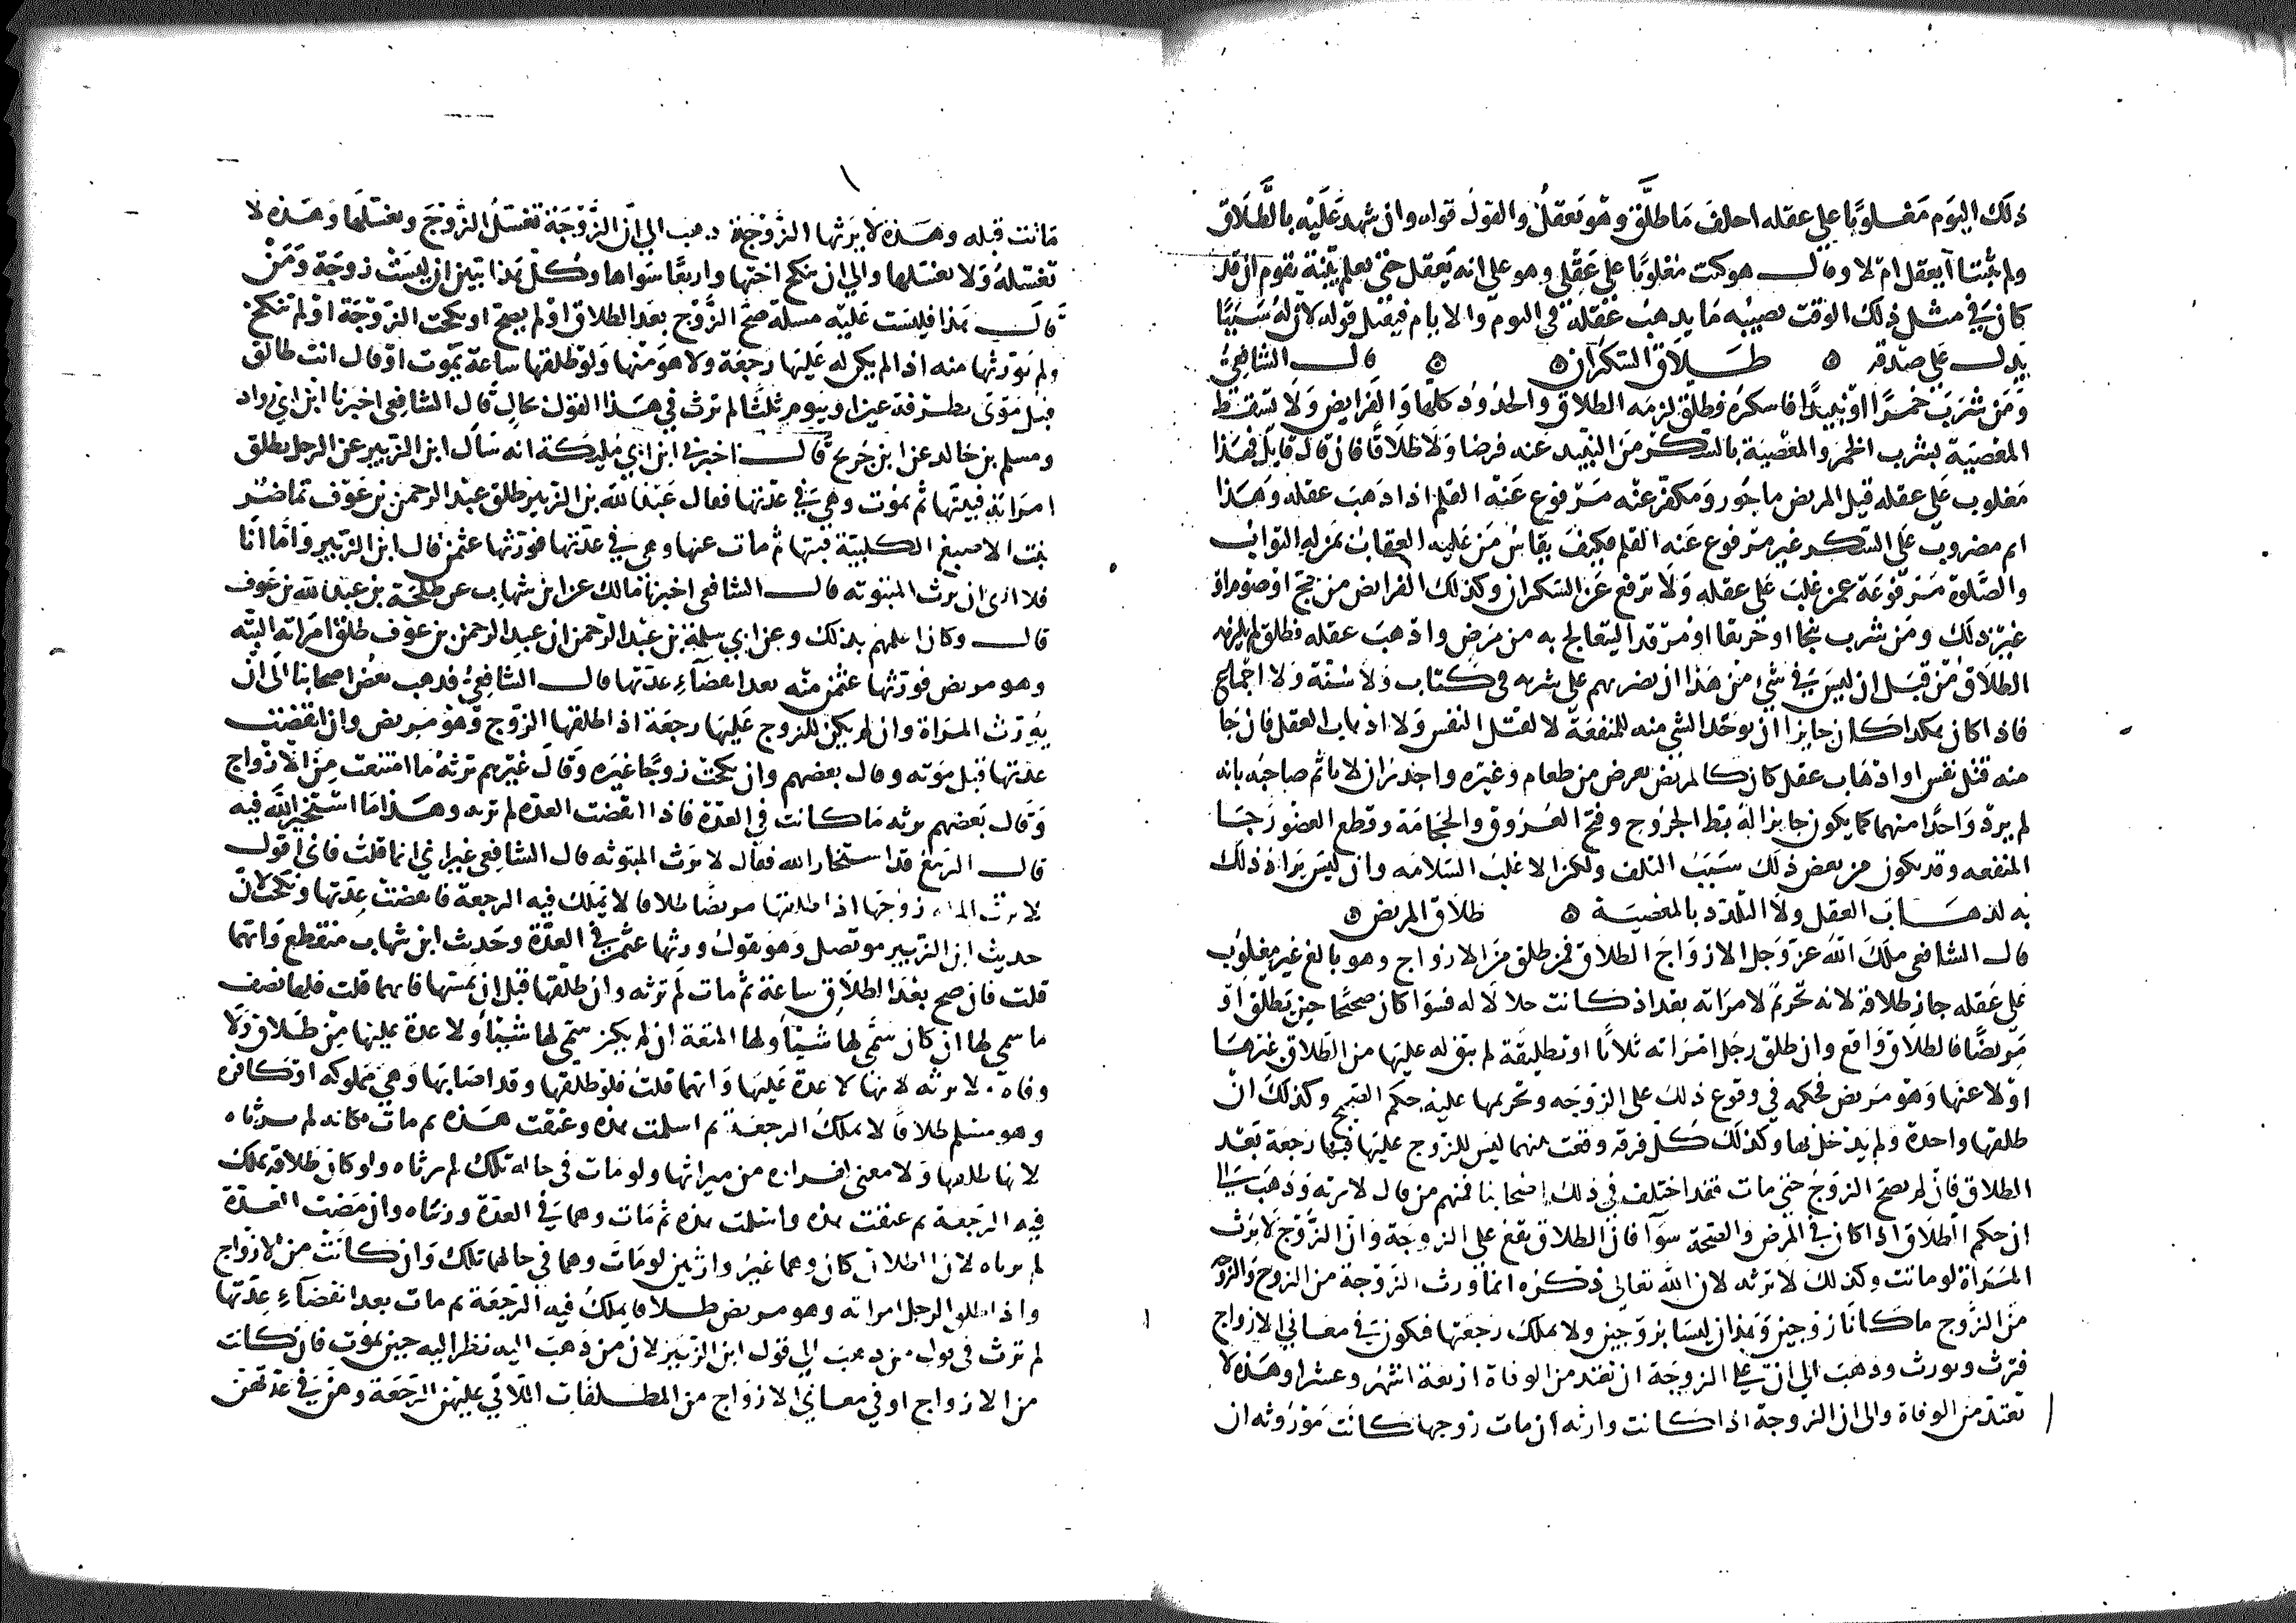 ذلك اليوم مغلوبا على عقله احلف ما طلق وهو يعقل والقول قوله وان شهد عليه بالطلاق
ولم يثبتا ايعقل ام لا وقال هو كنت مغلوبا على عقلي وهو على انه يعقل حتى يعلم ببينة تقوم ان قد
كان في مثل ذلك الوقت يصيبه ما يذهب عقله في اليوم والايام فيقبل قوله لان له سببا
يدل على صدقه ۞ طلاق السكران ۞ ۞ قال الشافعي
ومن شرب خمرا او نبيذا فاسكره فطلق لزمه الطلاق والحدود كلها والفرايض ولا تسقط
المعصية بشرب الخمر والمعصية بالسكر من النبيذ عنه فرضا ولا طلاقا فان قال قايل فهذا
مغلوب على عقله قيل المريض ماجور ومكفر عنه مرفوع عنه القلم اذا ذهب عقله وهذا
اثم مضروب على السكر غير مرفوع عنه القلم فكيف يقاس من عليه العقاب بمن له الثواب
والصلوة مرفوعة عمن غلب على عقله ولا ترفع عن السكران وكذلك الفرايض من حج او صوم او
غير ذلك ومن شرب بنجا او حريفا او مرقدا ليتعالج به من مرض واذهب عقله فطلق لم يلزمه
الطلاق من قبل ان ليس في شي من هذا ان نضربهم على شربه في كتاب ولا سنة ولا اجماع
فاذا كان هكذا كان جايزا ان يوخذ الشي منه للمنفعة لا لقتل النفس ولا اذهاب العقل فان جا
منه قتل نفس او اذهاب عقل كان كالمريض يمرض من طعام وغيره واجدر ان لا ياثم صاحبه بانه
لم يرد واحدا منهما كما يكون جايزا له بط الجروح وفتح العروق والحجامة وقطع العضو رجا
المنفعه وقد يكون من بعض ذلك سبب التلف ولكن الاغلب السلامه وان ليس يراد ذلك
به لذهاب العقل ولا التلذذ بالمعصية ۞ طلاق المريض ۞
قال الشافعي ملك الله عز وجل الازواج الطلاق فمن طلق من الازواج وهو بالغ غير مغلوب
على عقله جاز طلاقه لانه تحريم لامراته بعد اذ كانت حلالا له فسوا كان صحيحا حين يطلق او
مريضا فالطلاق واقع وان طلق رجل امراته ثلاثا او تطليقة لم يبق له عليها من الطلاق غيرها
او لاعنها وهو مريض فحكمه في وقوع ذلك على الزوجه وتحريمها عليه حكم الصحيح وكذلك ان
طلقها واحدة ولم يدخل بها وكذلك كل فرقه وقعت بينهما ليس للزوج عليها فيها رجعة بعد
الطلاق فان لم يصح الزوج حتى مات فقد اختلف في ذلك اصحابنا فمنهم من قال لا ترثه وذهب الى
ان حكم الطلاق اذا كان في المرض والصحة سوا فان الطلاق يقع على الزوجة وان الزوج لا يرث
المراة لو ماتت وكذلك لا ترثه لان الله تعالى ذكره انما ورث الزوجة من الزوج والزوج
من الزوج ما كانا زوجين وهذان ليسا بزوجين ولا يملك رجعتها فتكون في معاني الازواج
فترث وتورث وذهب الى ان على الزوجة ان تعتد من الوفاة اربعة اشهر وعشرا وهذه لا
تعتد من الوفاة والى ان الزوجة اذا كانت وارثه ان مات زوجها كانت موروثه ان
ماتت قبله وهذه لا يرثها الزوجة ذهب الى ان الزوجة تغسل الزوج ويغسلها وهذه لا
تغسله ولا يغسلها والى ان ينكح اختها واربعا سواها وكل هذا تبين ان ليست زوجة ومن
قال هذا فليست عليه مسلة صح الزوج بعد الطلاق او لم يصح او نكحت الزوجة او لم تنكح
ولم نورثها منه اذا لم يكن له عليها رجعة ولا هو منها ولو طلقها ساعة يموت او قال انت طالق
قبل موتي بطرفة عين او بيوم ثلثا لم ترث في هذا القول بحال قال الشافعي اخبرنا ابن ابي رواد
ومسلم بن خالد عن ابن جريج قال اخبرني ابن ابي مليكة انه سال ابن الزبير عن الرجل يطلق
امراته فيبتها ثم يموت وهي في عدتها فقال عبد الله بن الزبير طلق عبد الرحمن بن عوف تماضر
بنت الاصبغ الكلبية فبتها ثم مات عنها وهي في عدتها فورثها عثمن قال ابن الزبير واما انا
فلا ارى ان يرث المبتوته قال الشافعي اخبرنا مالك عن ابن شهاب عن طلحة بن عبد الله بن عوف
قال وكان اعلمهم بذلك وعن ابي سلمة بن عبد الرحمن ان عبد الرحمن بن عوف طلق امراته البته
وهو مريض فورثها عثمن منه بعد انقضاء عدتها قال الشافعي فذهب بعض اصحابنا الى ان
يورث المراة وان لم يكن للزوج عليها رجعة اذا طلقها الزوج وهو مريض وان انقضت
عدتها قبل موته وقال بعضهم وان نكحت زوجا غيره وقال غيرهم ترثه ما امتنعت من الازواج
وقال بعضهم ترثه ما كانت في العدة فاذا انقضت العده لم ترثه وهذا ما استخير الله فيه
قال الربيع قد استخار الله فقال لا ترث المبتوته قال الشافعي غير اني انما قلت فاني اقول
لا ترث المراة زوجها اذا طلقها مريضا طلاقا لا يملك فيه الرجعة فانقضت عدتها ونكحت لان
حديث ابن الزبير موتصل وهو يقول ورثها عثمن في العدة وحديث ابن شهاب منقطع وايهما
قلت فان صح بعد الطلاق ساعة ثم مات لم ترثه وان طلقها قبل ان يمسها فايهما قلت فلها نصف
ما سمى لها ان كان سمى لها شيئا ولها المتعة ان لم يكن سمى لها شيئا ولا عدة عليها من طلاق ولا
وفاة ولا ترثه لانها لا عدة عليها وايهما قلت فلو طلقها وقد اصابها وهي مملوكه او كافره
وهو مسلم طلاقا لا يملك الرجعة ثم اسلمت هذه وعتقت هذه ثم مات مكانه لم يرثاه
لانها طلقها ولا معنى لفراره من ميراثها ولو مات في حاله تلك لم يرثاه ولو كان طلاقه يملك
فيه الرجعة ثم عتقت هذه واسلمت هذه ثم مات وهما في العدة ورثاه وان مضت العدة
لم يرثاه لان الطلاق كان وهما غير وارثين لو مات وهما في حالهما تلك وان كانت من الازواج
واذا طلق الرجل امراته وهو مريض طلاقا يملك فيه الرجعة ثم مات بعد انقضاء عدتها
لم ترث في قول من ذهب الى قول ابن الزبير لان من ذهب اليه نظر اليه حين يموت فان كانت
من الازواج او في معاني الازواج من المطلقات اللاتي عليهن الرجعة وهن في عدتهن